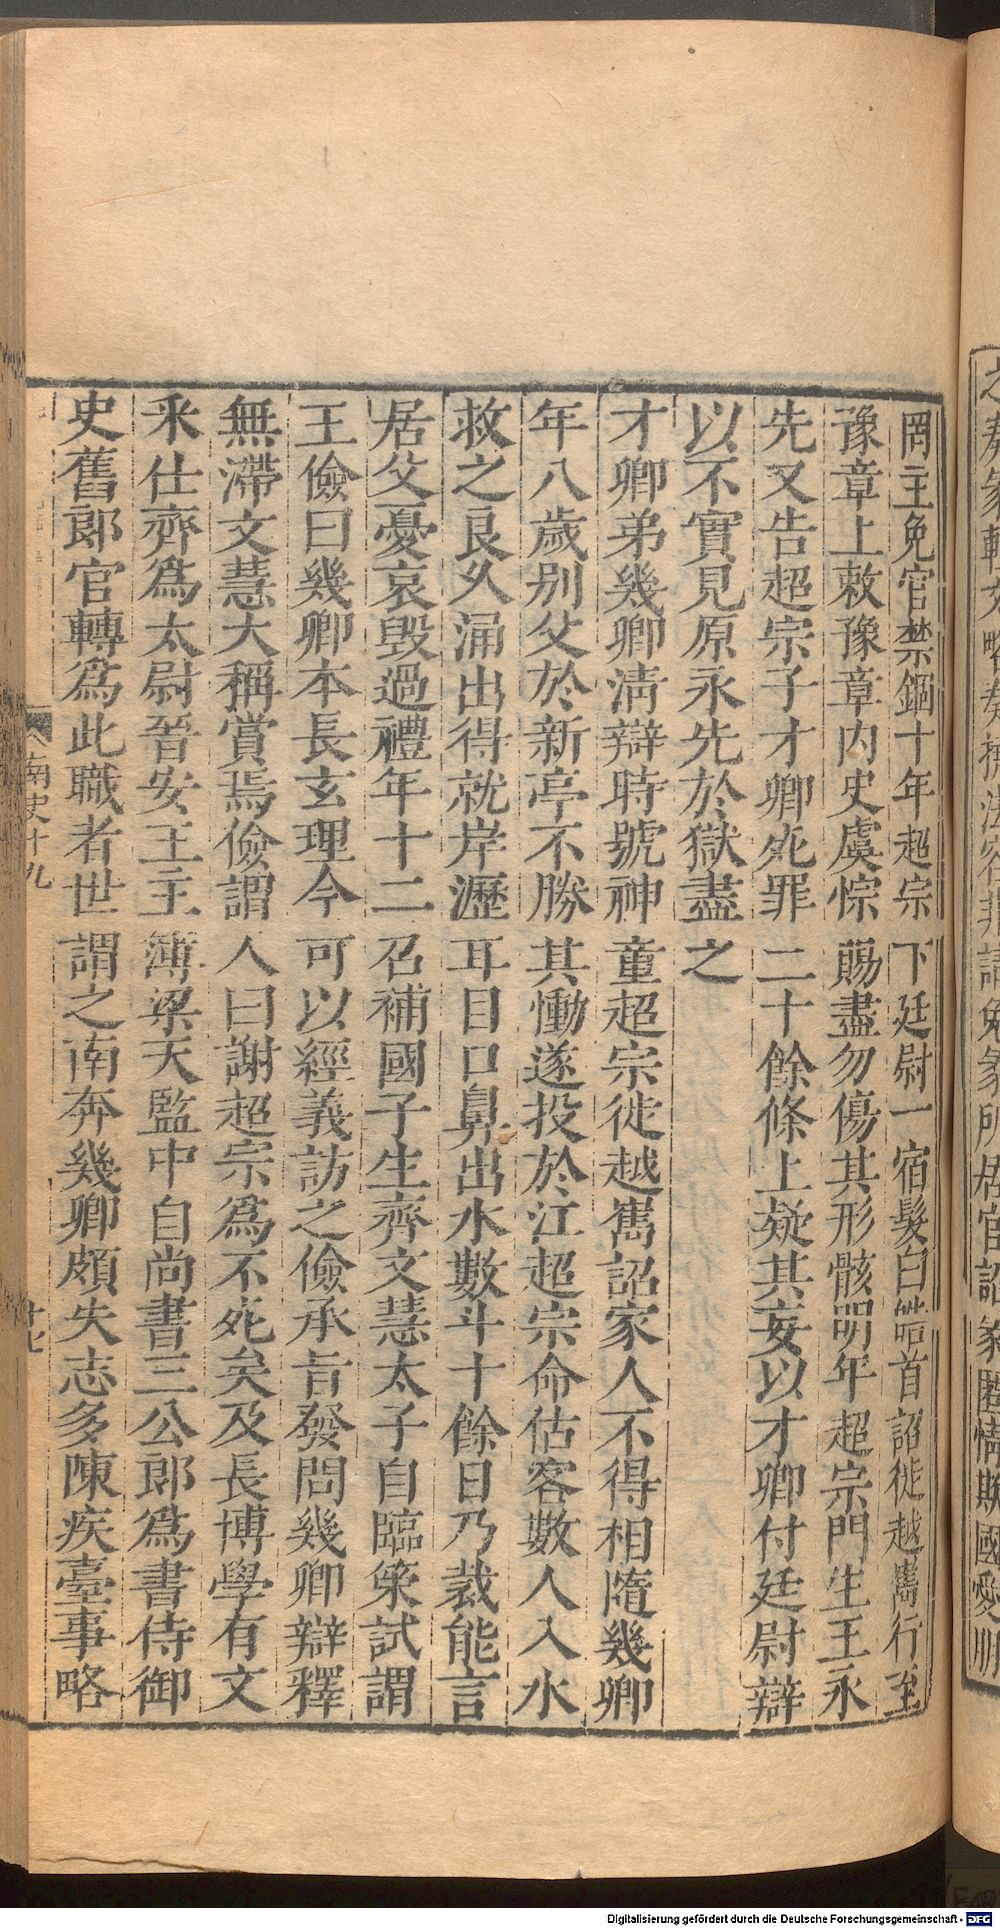 罔主免官禁錮十年超宗下廷尉一宿髮白皓首詔徙越巂行至
豫章上敕豫章內史虞悰賜盡勿傷其形骸明年超宗門生王永
先又告超宗子才卿死罪二十餘條上疑其妄以才卿付廷尉辯
以不實見原永先於獄盡之
才卿弟幾卿淸辯時號神童超宗徙越巂詔家人不得相隨幾卿
年八歲別父於新亭不勝其慟遂投於江超宗命估客數人入水
救之良久涌出得就岸瀝耳目口鼻出水數斗十餘日乃裁能言
居父憂哀毀過禮年十二召補國子生齊文慧太子自臨策試謂
王儉曰幾卿本長玄理今可以經義訪之儉承旨發問幾卿辯釋
無滯文慧大稱賞焉儉謂人曰謝超宗爲不死矣及長博學有文
采仕齊爲太尉晉安王主簿梁天監中自尚書三公郎爲書侍御
史舊郎官轉爲此職者世謂之南奔幾卿頗失志多陳疾臺事略
南史十九
十七
Digitalisierung gefördert durch die Deutsche Forschungsgemeinschaft - DFG